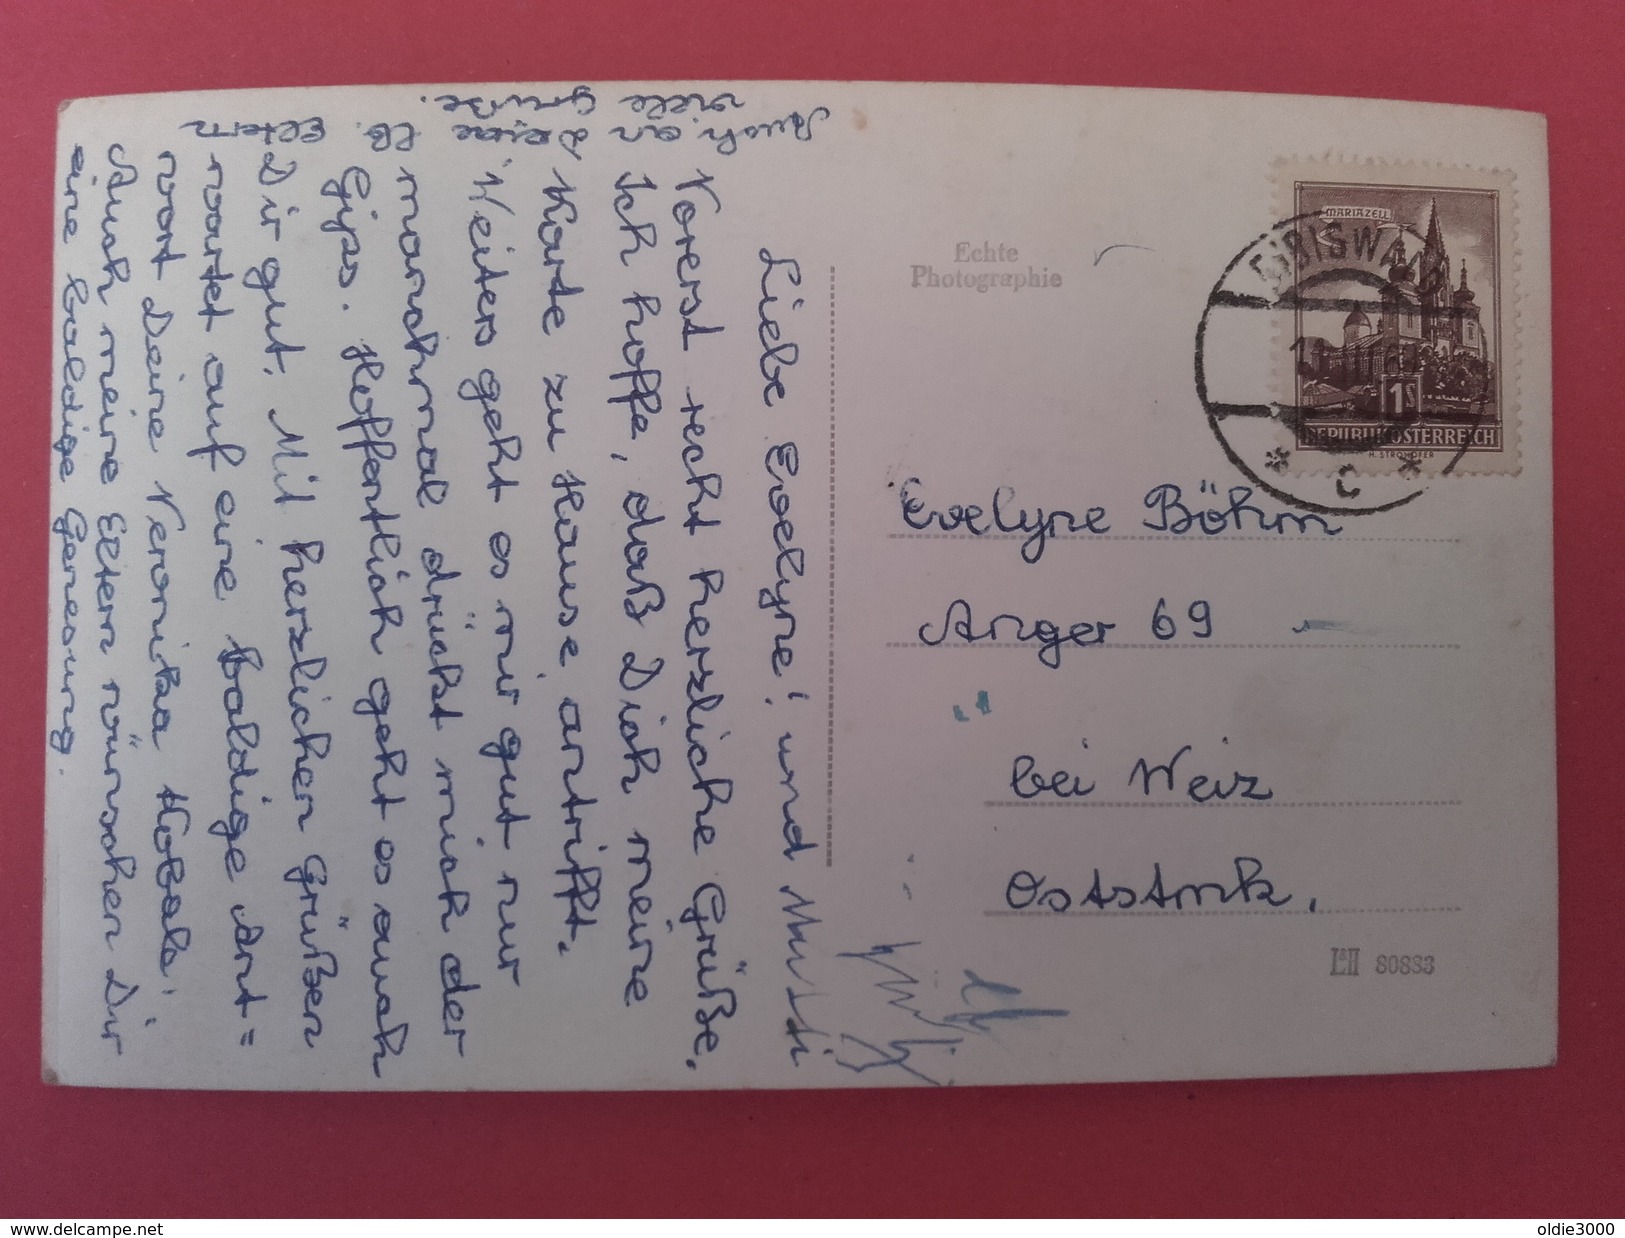 Liebe Evelyne! und Mutti
Vorerst recht herzliche Grüße.
Ich hoffe, daß Dich meine
Karte zu Hause antrifft.
Weiters geht es mir gut nur
manchmal drückt mich der
Gips. Hoffentlich geht es auch
Dir gut. Mit herzlichen Grüßen
wartet auf eine baldige Ant=
wort Deine Veronika
Auch meine Eltern wünschen Dir
eine baldige Genesung.
Auch an Deine lb. Eltern
viele Grüße.
Echte
Photographie
MARIAZELL
EIBISWALD
1S
REPUBLIK ÖSTERREICH
H. STROHOFER
* C *
Evelyne Böhm
Anger 69
bei Weiz
Oststmk.
80883
http://www.delcampe.net
oldie3000